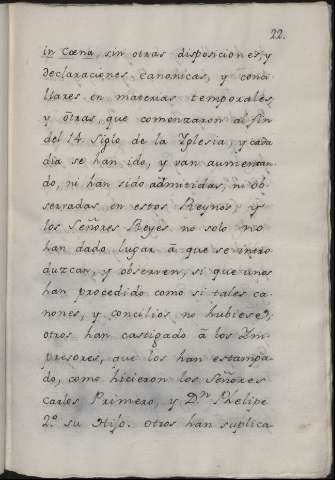 22.
in Cœna, sin otras disposiciones, y
declaraciones canonicas, y conci
liares en materias temporales,
y otras, que comenzaron al fin
del 14. Siglo de la Yglesia, y cada
dia se han ido, y van aumentan
do, ni han sido admitidas, ni ob
servadas en estos Reynos, y
los Señores Reyes no solo no
han dado lugar â que se intro
duzcan, y observen, si que unos
han procedido como si tales ca
nones, y concilios no hubiese;
otros han castigado â los Ym
presores, que los han estampa
do, como hicieron los Señores
Carlos Primero, y D.n Phelipe
2.º su Hijo. otros han suplica